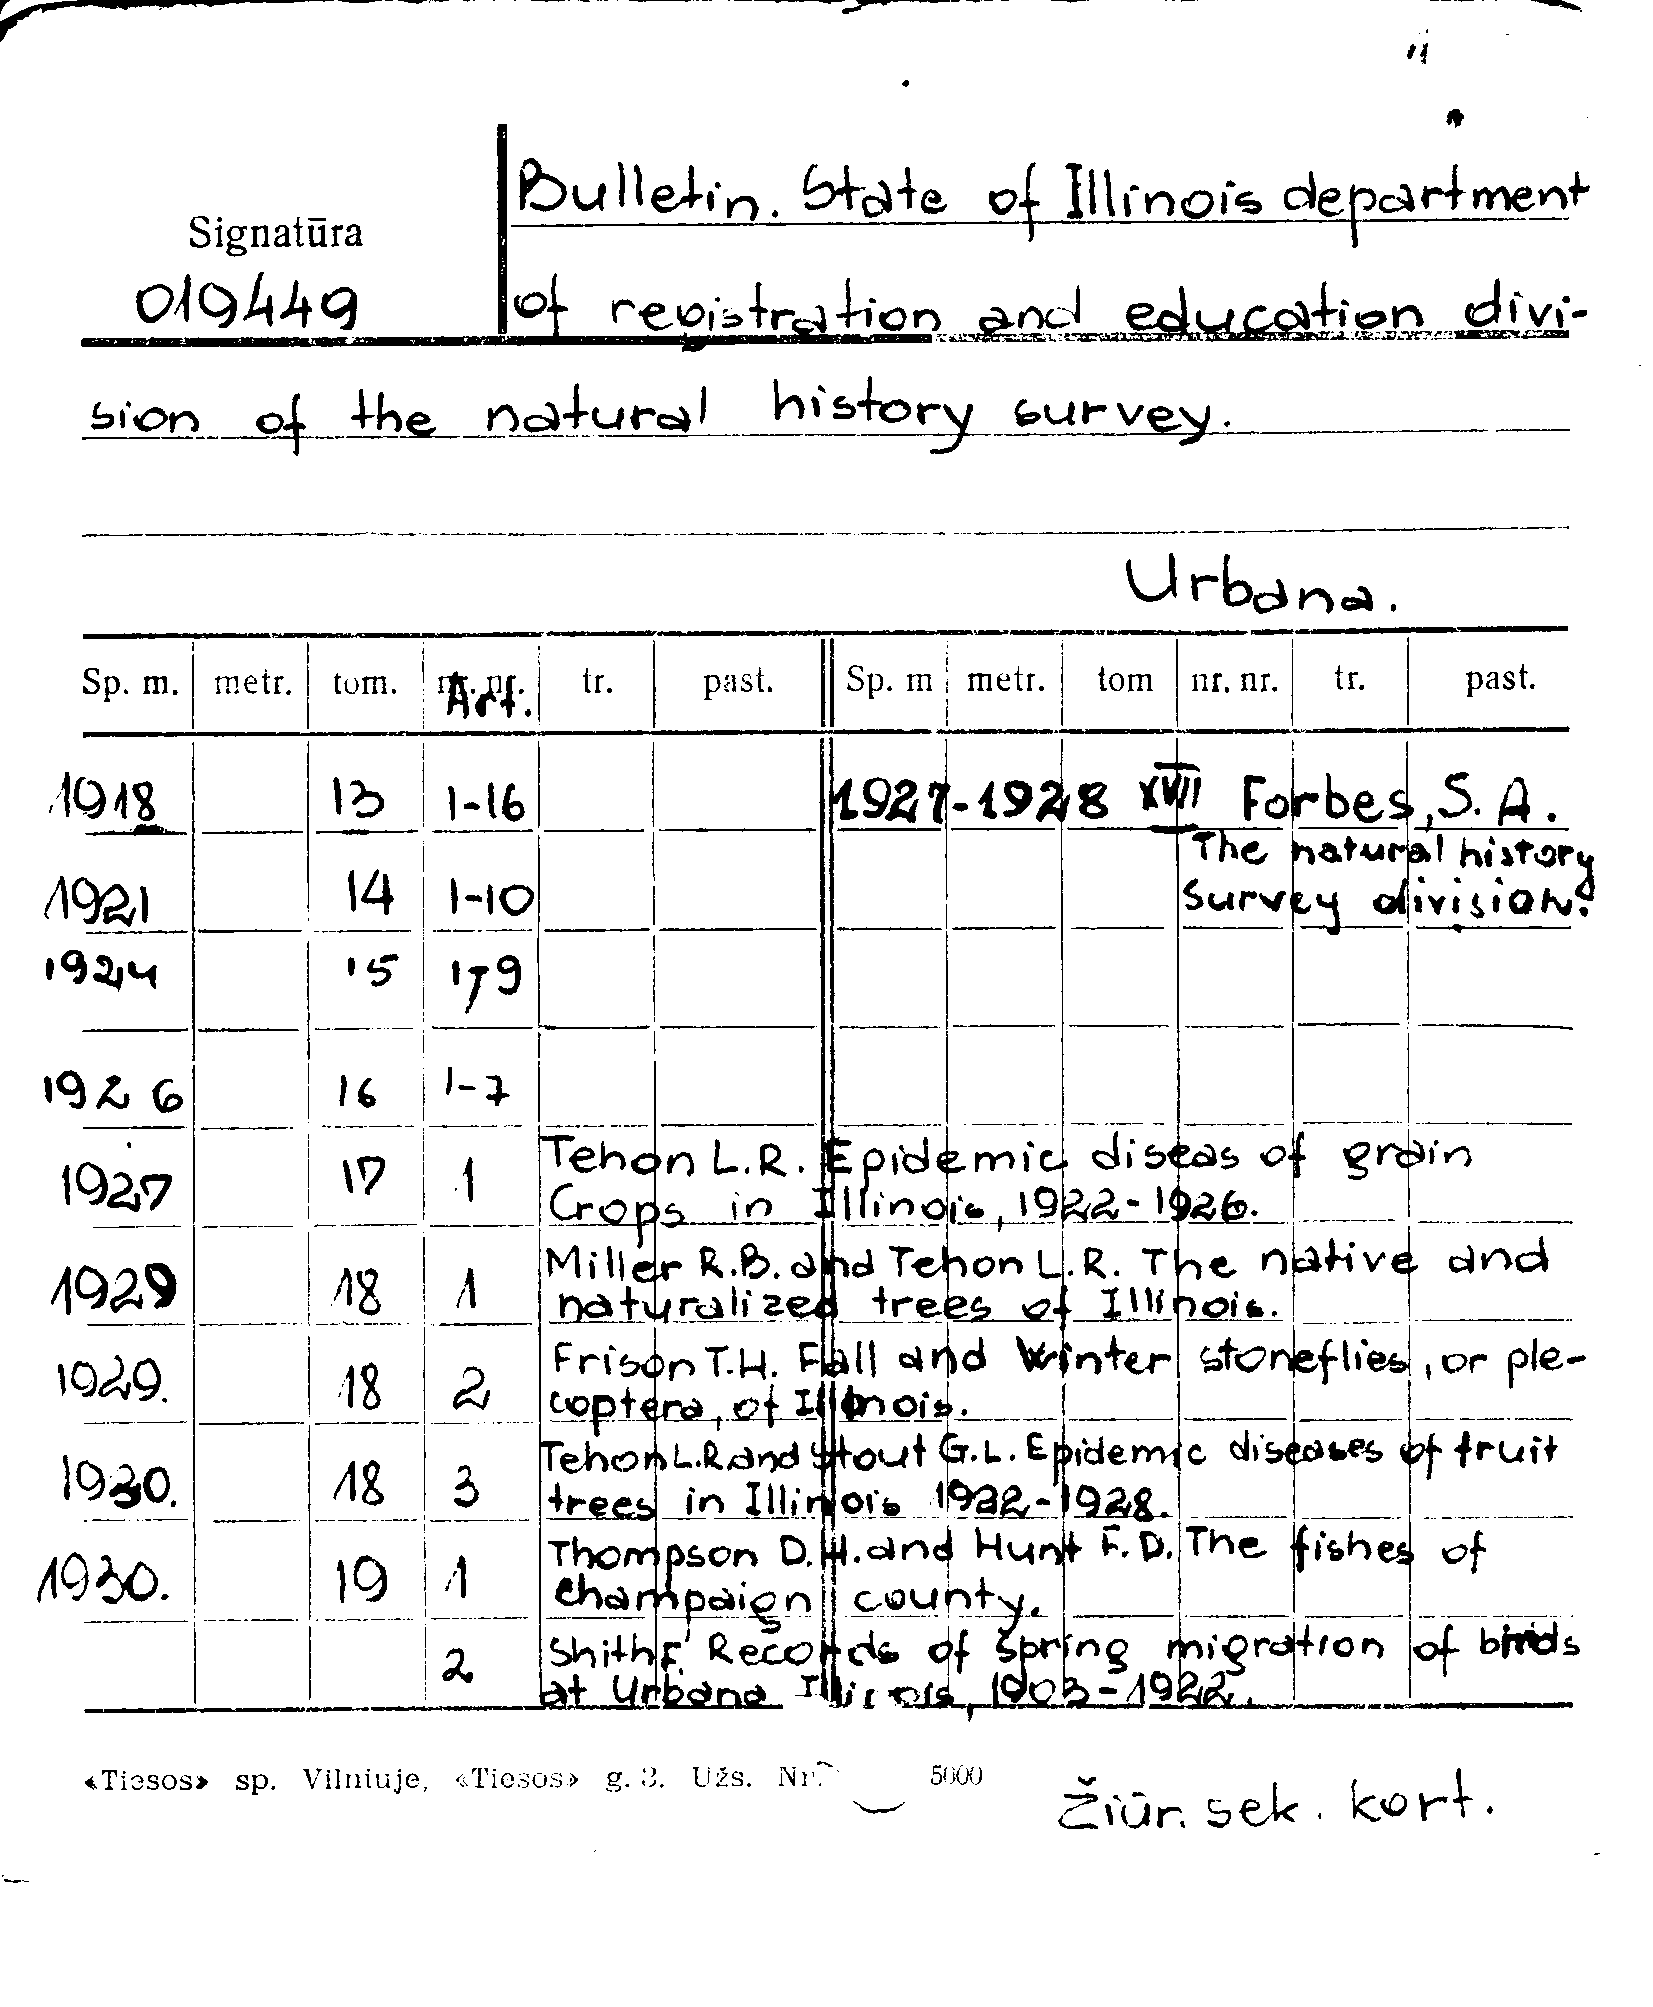 Bulletin. State of Illinois department
Signatūra
019449
of registration and education divi-
sion of the natural history survey.
Urbana.
Sp. m. metr. tom. Art. tr. past. Sp. m metr. tom nr. nr. tr. past.
1918 13 1-16 1927-1928 XVII Forbes, S. A.
The natural history
1921 14 1-10 survey division.
1924 15 1,9
1926 16 1-7
1927 17 1 Tehon L.R. Epidemic diseas of grain
Crops in Illinois, 1922-1926.
1929 18 1 Miller R.B. and Tehon L.R. The native and
naturalized trees of Illinois.
1929. 18 2 Frison T.H. Fall and Winter stoneflies, or ple-
coptera, of Illinois.
1930. 18 3 Tehon L.R. and Stout G.L. Epidemic diseases of fruit
trees in Illinois 1922-1928.
1930. 19 1 Thompson D.H. and Hunt F.D. The fishes of
champaign county.
2 Shith F. Records of spring migration of birds
at Urbana Illinois, 1903-1922.
«Tiesos» sp. Vilniuje, «Tiesos» g. 3. Užs. Nr. 5000
Žiūr. sek. kort.